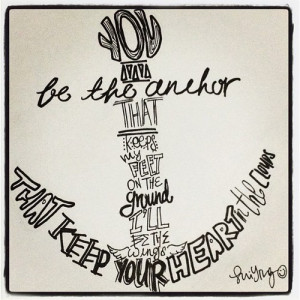 YOU
be the anchor
THAT
KEEPS
my
FEET
ON THE
ground
I'LL
BE THE
wings
THAT KEEP YOUR HEART in the clouds